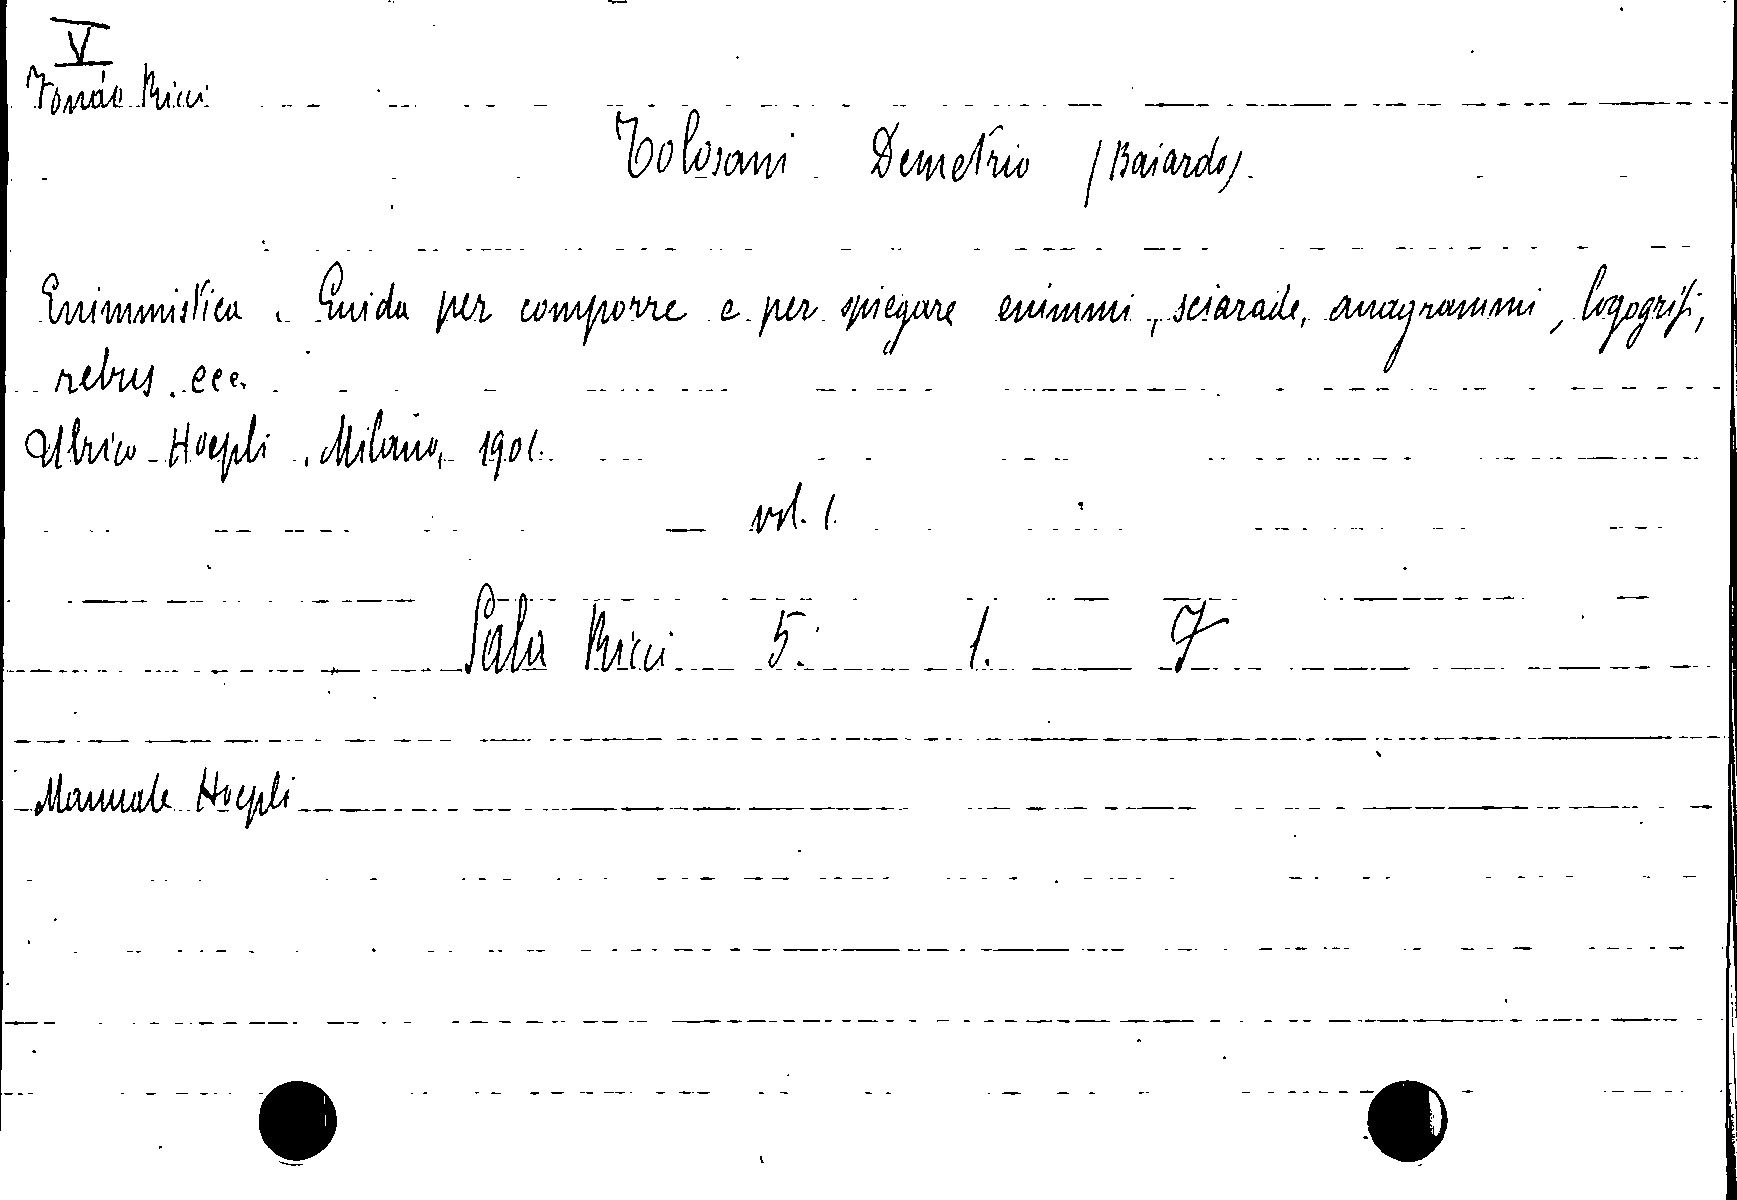 V
Fondo Ricci
Tolosani Demetrio (Baiardo).
Enimmistica. Guida per comporre e per spiegare enimmi, sciarade, anagrammi, logogrifi,
rebus. ecc.
Ulrico Hoepli. Milano, 1901.
vol. 1.
Sala Ricci 5. 1. 7
Manuale Hoepli